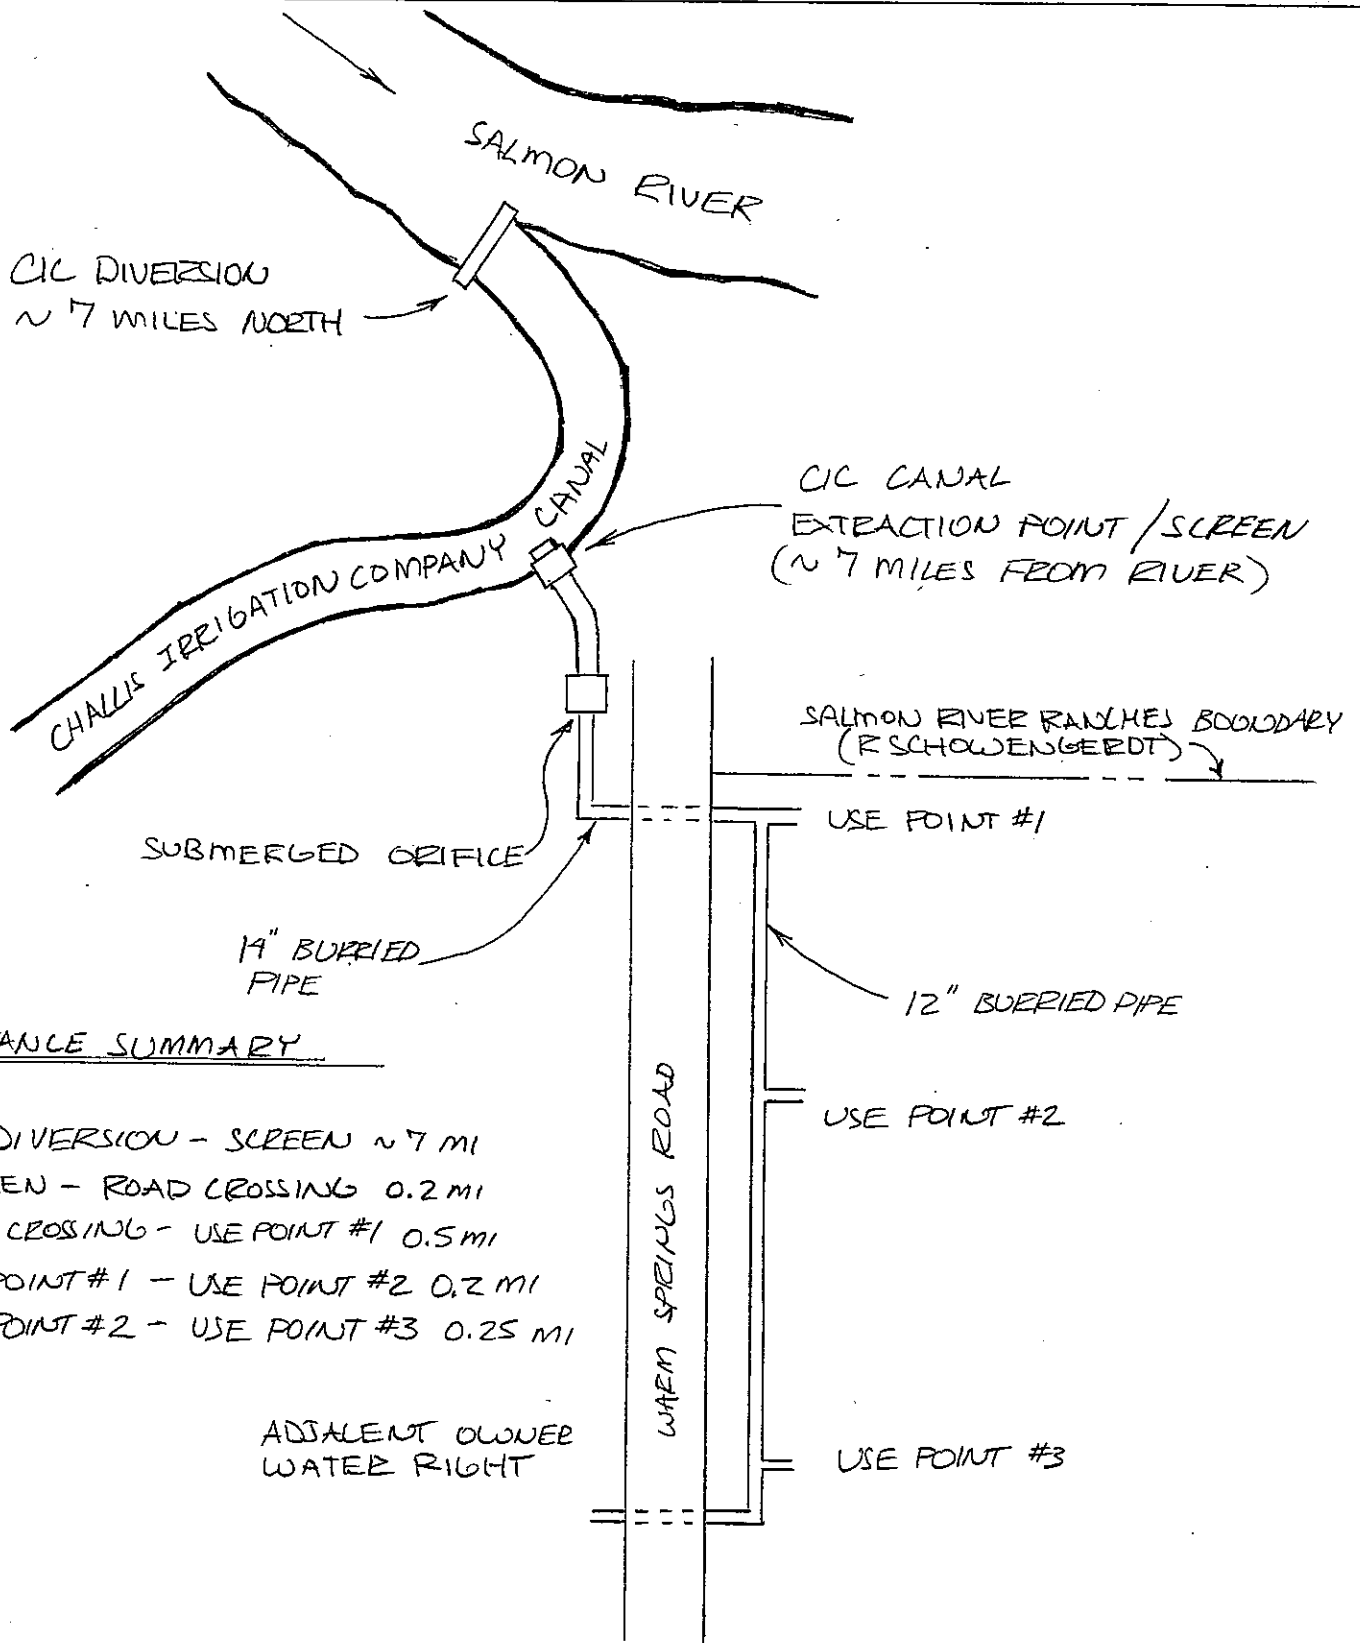 SALMON RIVER
CIC DIVERSION
~ 7 MILES NORTH
CHALLIS IRRIGATION COMPANY CANAL
CIC CANAL
EXTRACTION POINT / SCREEN
(~ 7 MILES FROM RIVER)
SALMON RIVER RANCHES BOUNDARY
(R SCHOWENGERDT)
USE POINT #1
SUBMERGED ORIFICE
14" BURRIED
PIPE
12" BURRIED PIPE
ANCE SUMMARY
USE POINT #2
DIVERSION - SCREEN ~ 7 MI
EEN - ROAD CROSSING 0.2 MI
CROSSING - USE POINT #1 0.5 MI
POINT #1 - USE POINT #2 0.2 MI
POINT #2 - USE POINT #3 0.25 MI
WARM SPRINGS ROAD
ADJACENT OWNER
WATER RIGHT
USE POINT #3